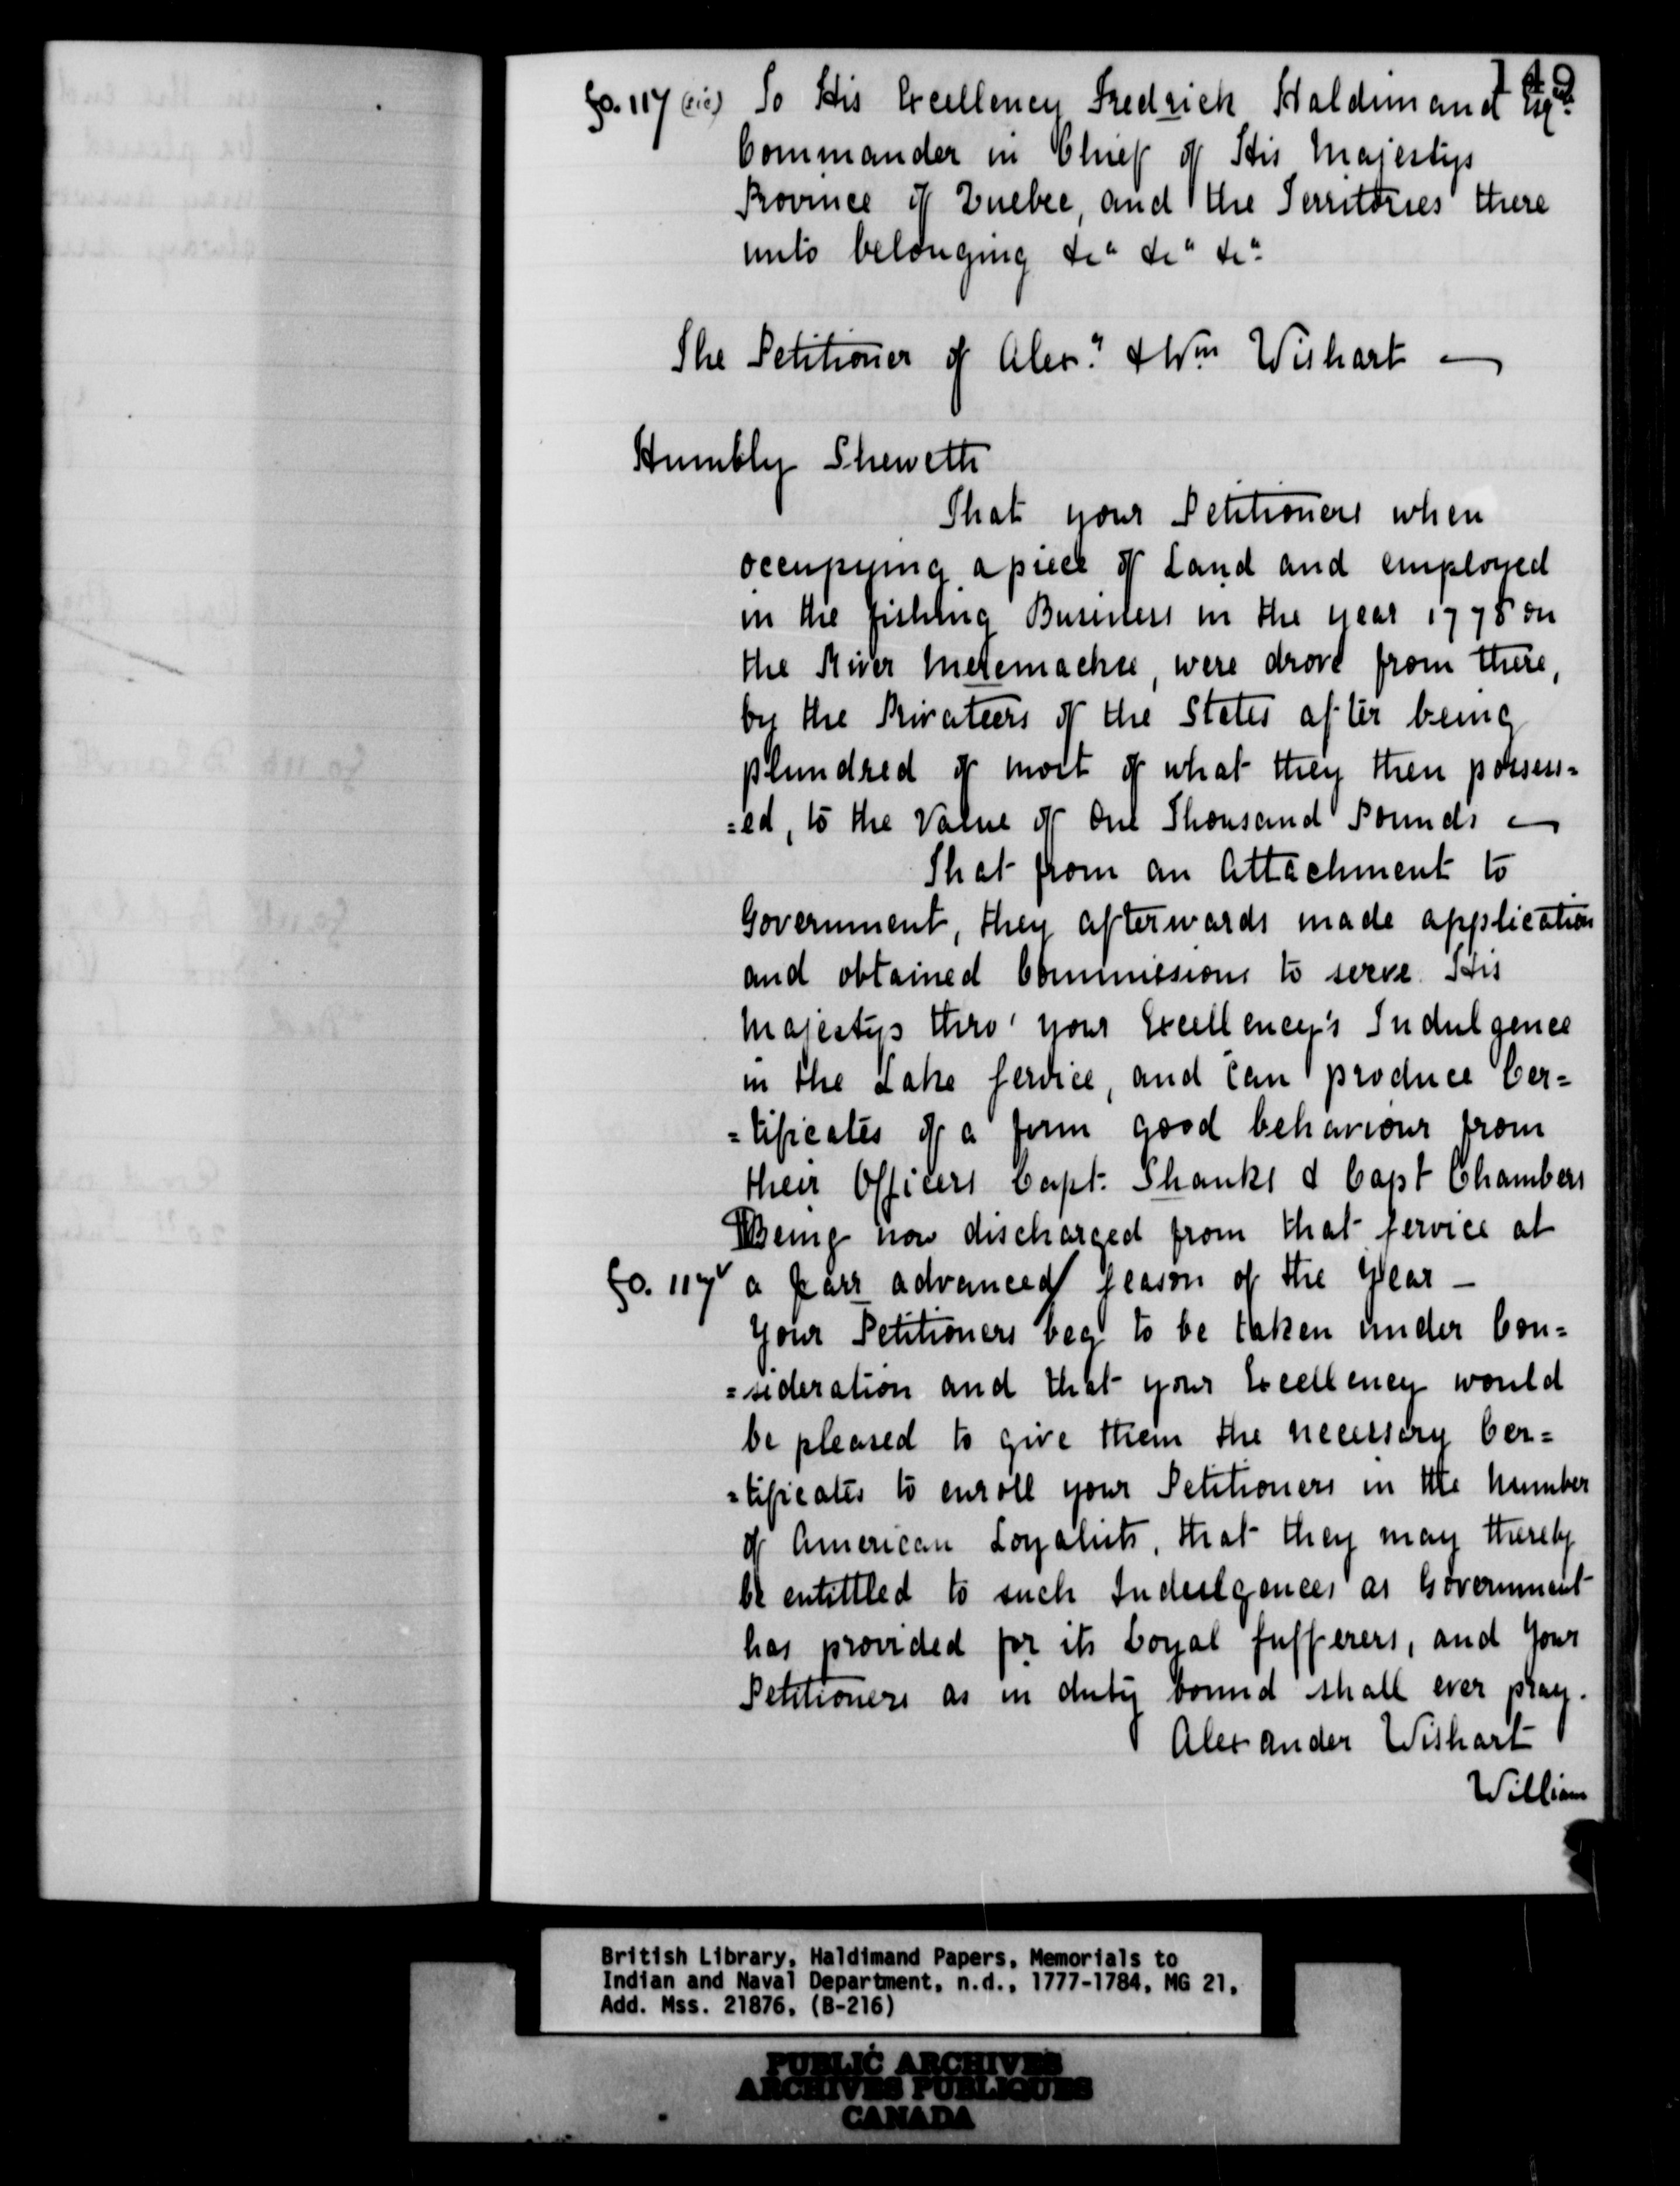 149
fo. 117 (sic) To His Excellency Fredrick Haldimand Esqr.
Commander in Chief of His Majestys
Province of Quebec, and the Territories there
unto belonging &ca &ca &ca
The Petitioner of Alexr. & Wm Wishart —
Humbly Sheweth
That your Petitioners when
occupying a piece of Land and employed
in the fishing Business in the year 1778 on
the River Meremachee, were drove from there,
by the Privateers of the States after being
plundred of most of what they then possess=
=ed, to the Value of One Thousand Pounds —
That from an Attachment to
Government, they afterwards made application
and obtained Commissions to serve His
Majestys thro' your Excellency's Indulgence
in the Lake Service, and can produce Cer=
=tificates of a firm good behaviour from
their Officers Capt. Shanks & Capt Chambers
Being now discharged from that Service at
fo. 117v a farr advanced Season of the Year —
Your Petitioners beg to be taken under Con=
=sideration and that your Excellency would
be pleased to give them the necessary Cer=
=tificates to enroll your Petitioners in the Number
of American Loyalists, that they may thereby
be entittled to such Indulgences as Government
has provided for its Loyal Sufferers, and Your
Petitioners as in duty bound shall ever pray.
Alexander Wishart
William
British Library, Haldimand Papers, Memorials to
Indian and Naval Department, n.d., 1777-1784, MG 21,
Add. Mss. 21876, (B-216)
PUBLIC ARCHIVES
ARCHIVES PUBLIQUES
CANADA